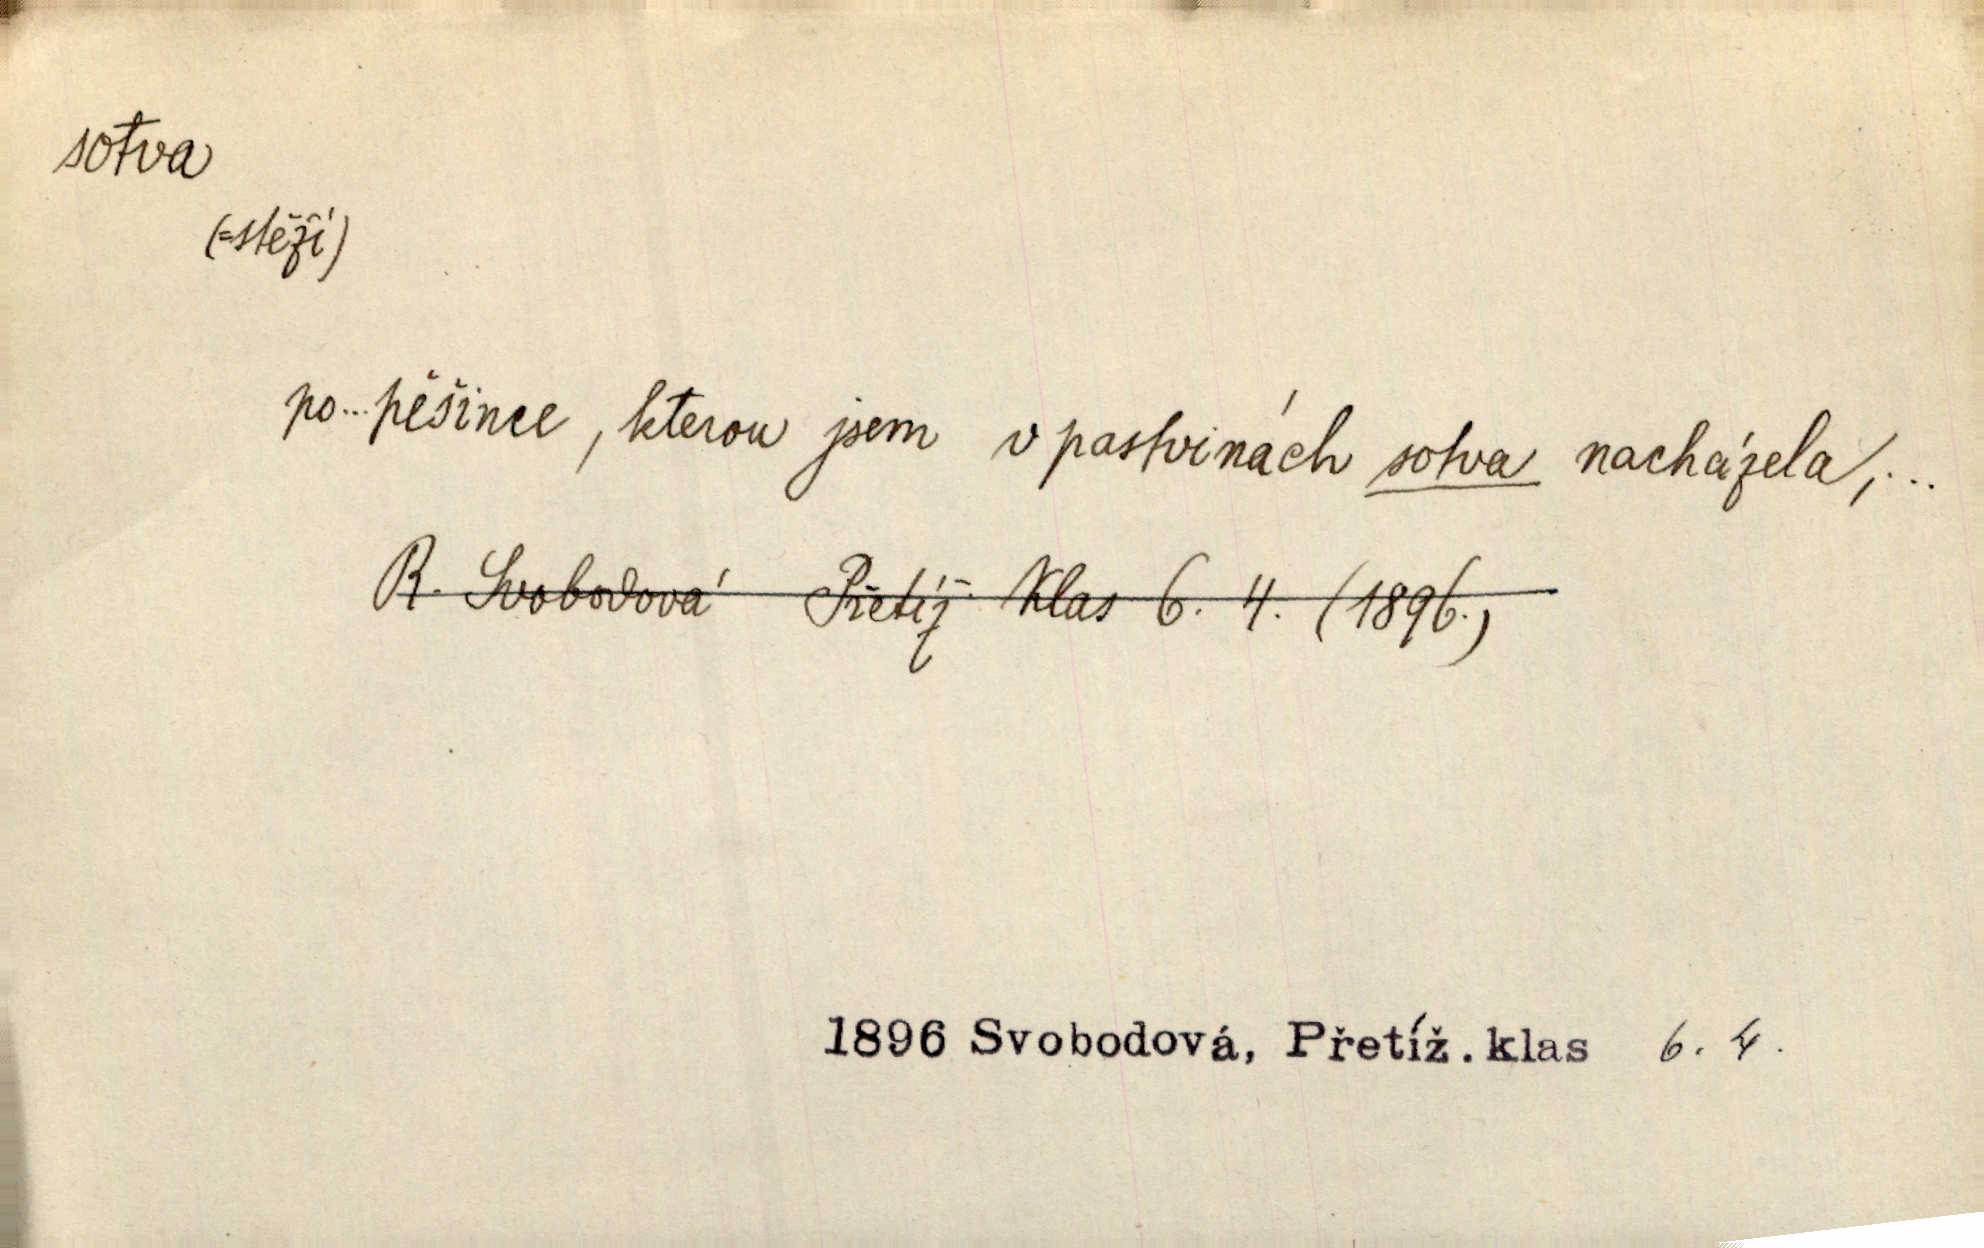 sotva
(=stěží)
po... pěšince, kterou jsem v pastvinách sotva nacházela,...
R. Svobodová Přetíž. Klas 6. 4. (1896.)
1896 Svobodová, Přetíž.klas 6. 4.